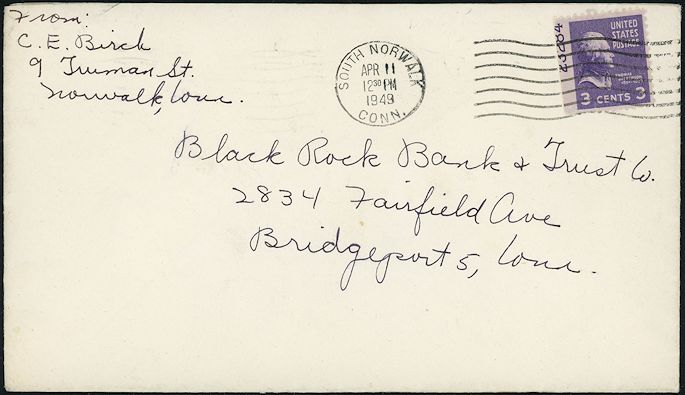 From:
C. E. Birch
9 Truman St.
Norwalk, Conn.
SOUTH NORWALK
APR 11
12 30 PM
1949
CONN.
23284
UNITED
STATES
POSTAGE
THOMAS
JEFFERSON
3 CENTS 3
Black Rock Bank & Trust Co.
2834 Fairfield Ave
Bridgeport 5, Conn.